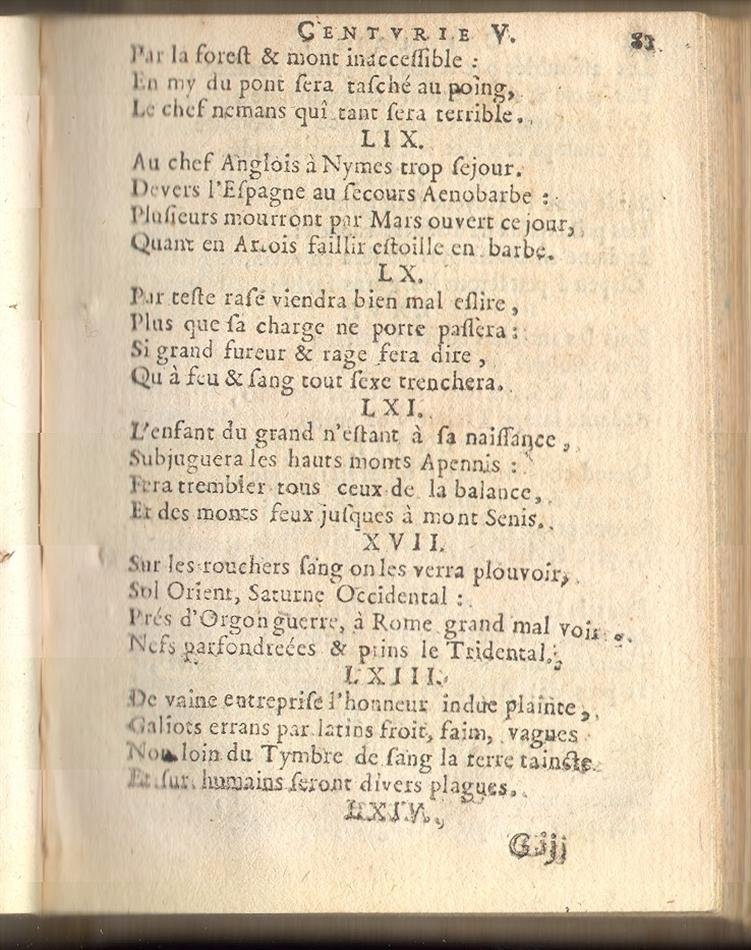 CENTVRIE V. 83
Par la forest & mont inaccessible :
En my du pont sera tasché au poing,
Le chef nemans qui tant sera terrible.
LIX.
Au chef Anglois à Nymes trop sejour.
Devers l'Espagne au secours Aenobarbe :
Plusieurs mourront par Mars ouvert ce jour,
Quant en Artois faillir estoille en barbe.
LX.
Par teste rase viendra bien mal eslire,
Plus que sa charge ne porte passera :
Si grand fureur & rage fera dire,
Qu à feu & sang tout sexe trenchera.
LXI.
L'enfant du grand n'estant à sa naissance,
Subjuguera les hauts monts Apennis :
Fera trembler tous ceux de la balance,
Et des monts feux jusques à mont Senis.
XVII.
Sur les rouchers sang on les verra plouvoir,
Sol Orient, Saturne Occidental :
Prés d'Orgon guerre, à Rome grand mal voir
Nefs parfondreées & prins le Tridental.
LXIII.
De vaine entreprise l'honneur indue plainte,
Galiots errans par latins froit, faim, vagues
Non loin du Tymbre de sang la terre tainste
Et sur humains seront divers plagues.
LXIV.
Giij